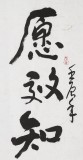 愿致知
壬辰年